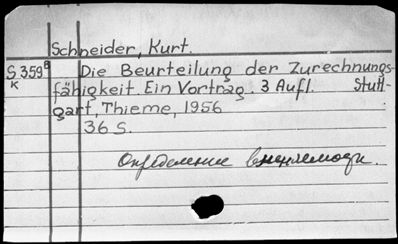 Schneider, Kurt.
S 359⁸ Die Beurteilung der Zurechnungs-
K fähigkeit. Ein Vortrag. 3 Aufl. Stutt-
gart, Thieme, 1956
36 S.
Определение вменяемости.